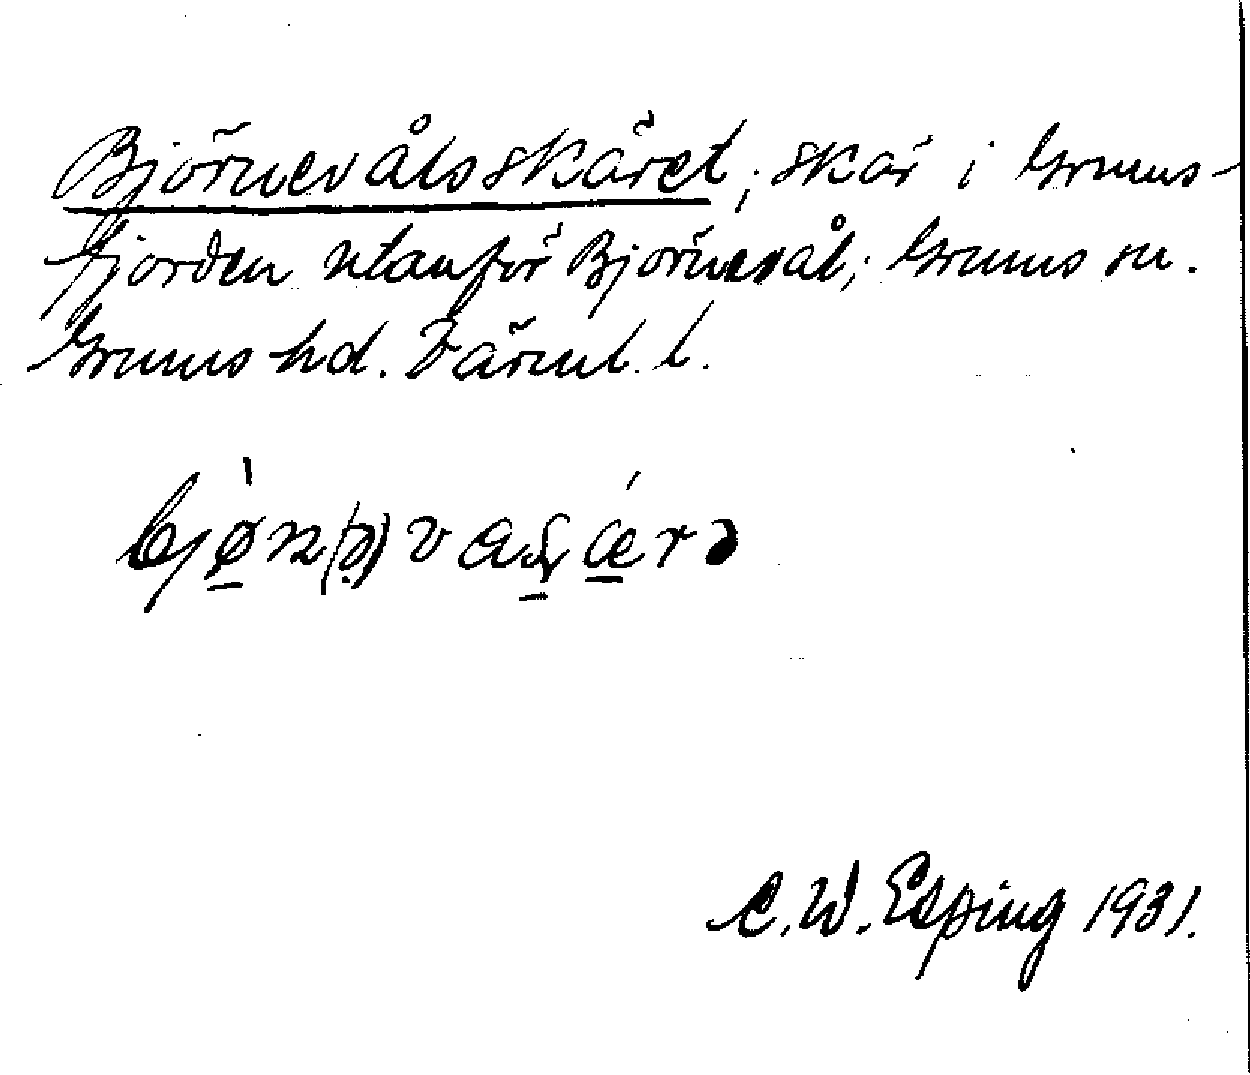 Björnevålsskäret; skär i Grums-
fjorden utanför Björnevål; Grums sn.
Grums hd. Värml. l.
bjø̠̀n(ə)vaʂǽ̠rə
C. W. Esping 1931.